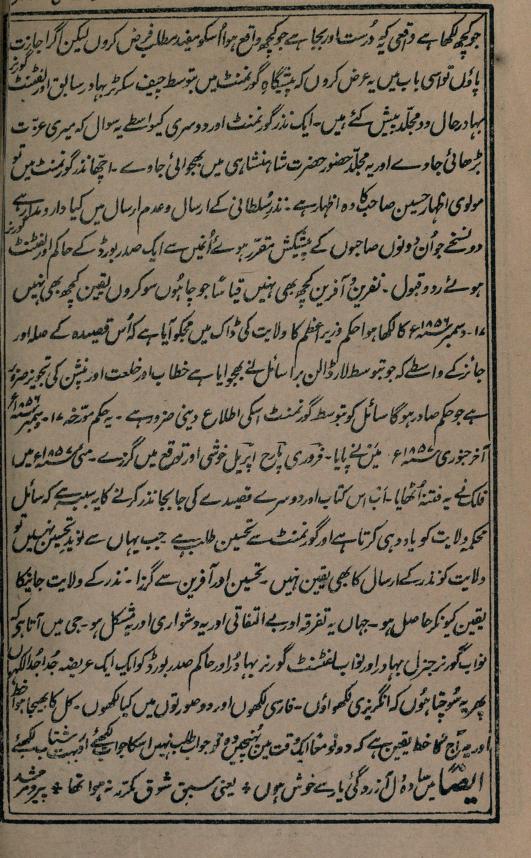 جو کچھ لکھا ہے واقعی کہ درست اور بجا ہے جو کچھ واقع ہو اُسکو مفید مطلب فرض کروں لیکن اگر اجازت
پاؤں تو اسی باب میں یہ عرض کروں کہ پیشگاہِ گورنمنٹ میں بتوسط چیف سکرٹر بہادر سابق اور لفٹنٹ گورنر
بہادر حال دو مجلّد پیش کئے ہیں۔ ایک نذر گورنمنٹ اور دوسری کیواسطے یہ سوال کہ میری عزّت
بڑھائی جاوے اور یہ مجلّد حضور حضرت شاہنشاہی میں بھجوائی جاوے۔ اچھّا نذر گورنمنٹ میں تو
مولوی اظہار حسین صاحب کا وہ اظہار ہے۔ نذر سُلطانی کے ارسال و عدم ارسال میں کیا دار و مدار ہے
دو نسخے جو اُن دونوں صاحبوں کے پیشکش مقرّر ہوئے اُنمیں سے ایک صدر بورڈ کے حاکم اور لفٹنٹ گورنر
ہوئے رد و قبول۔ نفرین و آفرین کچھ بھی نہیں قیاسًا جو چاہوں سو کروں یقین کچھ بھی نہیں
۱۷۔ دسمبر ۱۸۵۶ء کا لکھا ہوا حکم وزیر اعظم کا ولایت کی ڈاک میں مجکو آیا ہے کہ اُس قصیدہ کے صلہ اور
جائزے کے واسطے کہ جو بتوسط لارڈ الن برا سائل نے بھجوایا ہے خطاب اور خلعت اور پنشن کی تجویز ضرور
ہے جو حکم صادر ہوگا سائل کو بتوسط گورنمنٹ اسکی اطلاع دینی ضرور ہے۔ یہ حکم مورّخہ ۱۷۔ دسمبر ۱۸۵۶ء
آخر جنوری ۱۸۵۷ء میں نے پایا۔ فروری مارچ اپریل خوشی اور توقع میں گزرے۔ مئی ۱۸۵۷ء میں
فلک نے یہ فتنہ اُٹھایا۔ اب اس کتاب اور دوسرے قصیدے کی جا بجا نذر کرنے کا یہ سبب ہے کہ سائل
محکمہ ولایت کو یاد دہی کرتا ہے اور گورنمنٹ سے تحسین طلب ہے جب یہاں سے نوید تحسین نہیں تو
ولایت کو نذر کے ارسال کا بھی یقین نہیں۔ تحسین اور آفرین سے گزرا۔ نذر کے ولایت جانیکا
یقین کیونکر حاصل ہو۔ جہاں یہ تفرقہ اور بے التفاتی اور یہ دشواری اور یہ مشکل ہو۔ جی میں آتا ہے کہ
نواب گورنر جنرل بہادر اور نواب لفٹنٹ گورنر بہادر اور حاکم صدر بورڈ کو ایک ایک عریضہ جدا جدا لکھوں
پھر یہ سوچتا ہوں کہ انگریزی لکھواؤں۔ فارسی لکھوں اور دو صورتوں میں کیا لکھوں۔ کل کا بھیجا ہوا خط
اور یہ آج کا خط یقین ہے کہ دونو معًا ایک وقت میں پہنچیں وہ تو جواب طلب نہیں اسکا جواب لکھئے
ایضًا میں سادہ دل آزردگئی یار سے خوش ہوں ✣ یعنی سبق شوق مکرّر نہ ہوا تھا ✣ پیر و مرشد